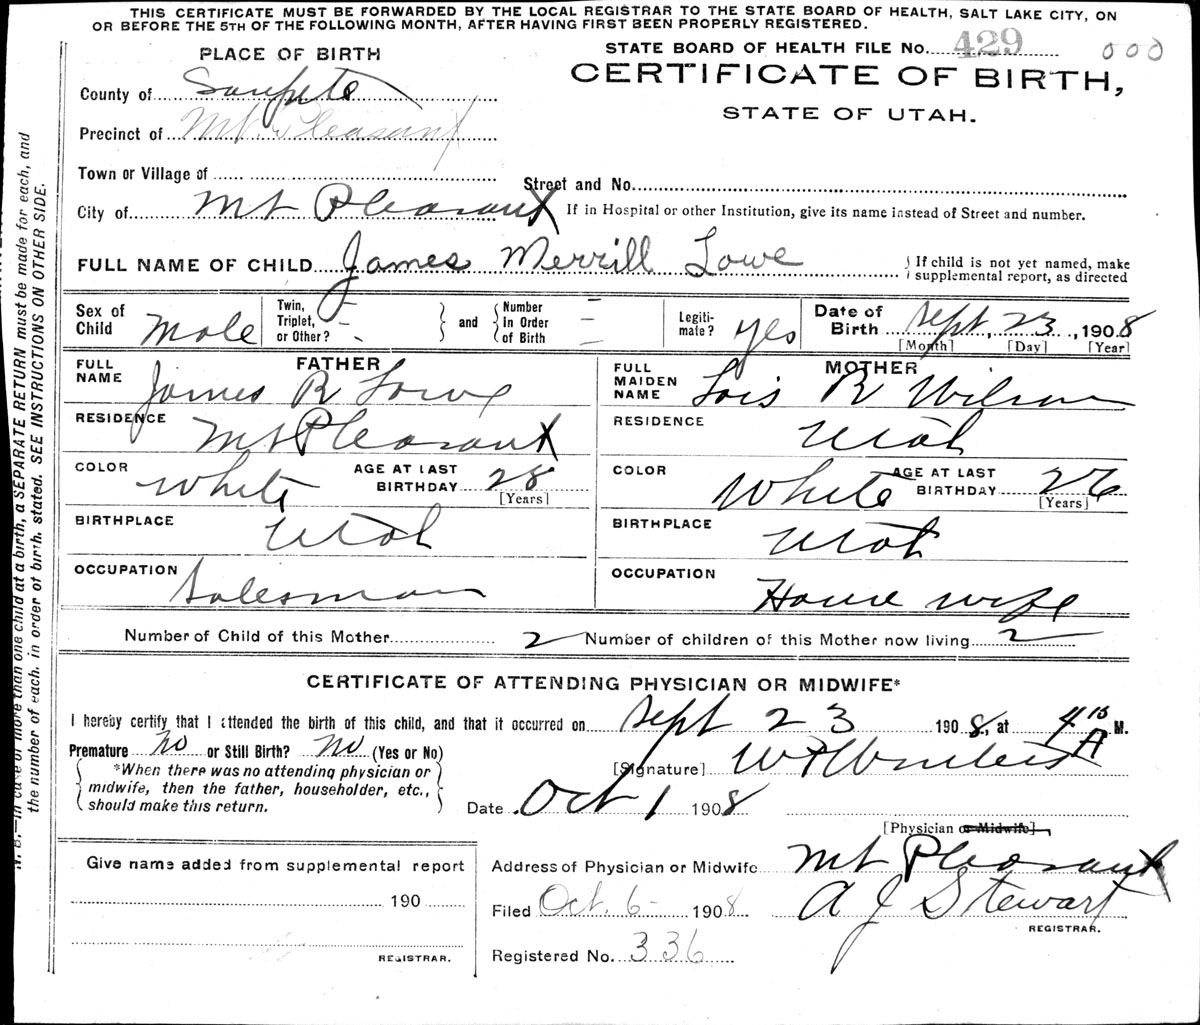 THIS CERTIFICATE MUST BE FORWARDED BY THE LOCAL REGISTRAR TO THE STATE BOARD OF HEALTH, SALT LAKE CITY, ON
OR BEFORE THE 5TH OF THE FOLLOWING MONTH, AFTER HAVING FIRST BEEN PROPERLY REGISTERED.
PLACE OF BIRTH
STATE BOARD OF HEALTH FILE No. 429 000
CERTIFICATE OF BIRTH,
STATE OF UTAH.
County of Sanpete
Precinct of Mt. Pleasant
Town or Village of
Street and No.
City of Mt Pleasant
If in Hospital or other Institution, give its name instead of Street and number.
FULL NAME OF CHILD James Merrill Lowe
If child is not yet named, make supplemental report, as directed
Sex of Child Male
Twin, Triplet, or Other? - and Number In Order of Birth -
Legitimate? yes
Date of Birth Sept. 23, 1908
[Month] [Day] [Year]
FATHER
FULL NAME James R Lowe
MOTHER
FULL MAIDEN NAME Lois R Wilson
RESIDENCE Mt Pleasant
RESIDENCE Utah
COLOR White AGE AT LAST BIRTHDAY 28 [Years]
COLOR White AGE AT LAST BIRTHDAY 26 [Years]
BIRTHPLACE Utah
BIRTHPLACE Utah
OCCUPATION Salesman
OCCUPATION House wife
Number of Child of this Mother 2 Number of children of this Mother now living 2
CERTIFICATE OF ATTENDING PHYSICIAN OR MIDWIFE*
I hereby certify that I attended the birth of this child, and that it occurred on Sept 23 1908, at 4 A M.
Premature no or Still Birth? no (Yes or No)
*When there was no attending physician or midwife, then the father, householder, etc., should make this return.
[Signature]
Date Oct 1 1908
[Physician or Midwife]
Give name added from supplemental report
190
REGISTRAR.
Address of Physician or Midwife Mt Pleasant
Filed Oct. 6 - 1908 A J Stewart
REGISTRAR.
Registered No. 336
N. B.—In case of more than one child at a birth, a SEPARATE RETURN must be made for each, and
the number of each, in order of birth, stated. SEE INSTRUCTIONS ON OTHER SIDE.